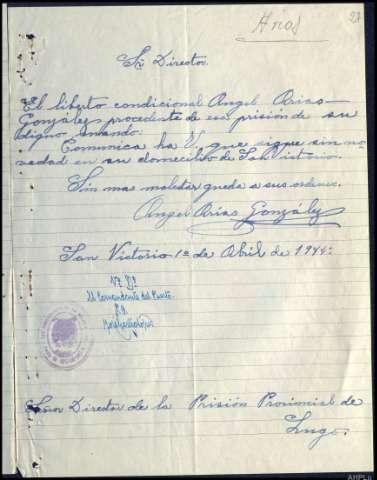 Arias
Sr Director
El liberto condicional Angel Arias
González procedente de esa prisión de su
digno mando.
Comunica ha V. que sigue sin no-
vedad en su domecilio de San Victorio.
Sin mas molestar queda a sus ordenes.
Angel Arias González
San Victorio 1º de Abril de 1944:
Vº Bº
El Comandente del Puesto.
Señor Director de la Prisión Provincial de
Lugo.
AHPLU